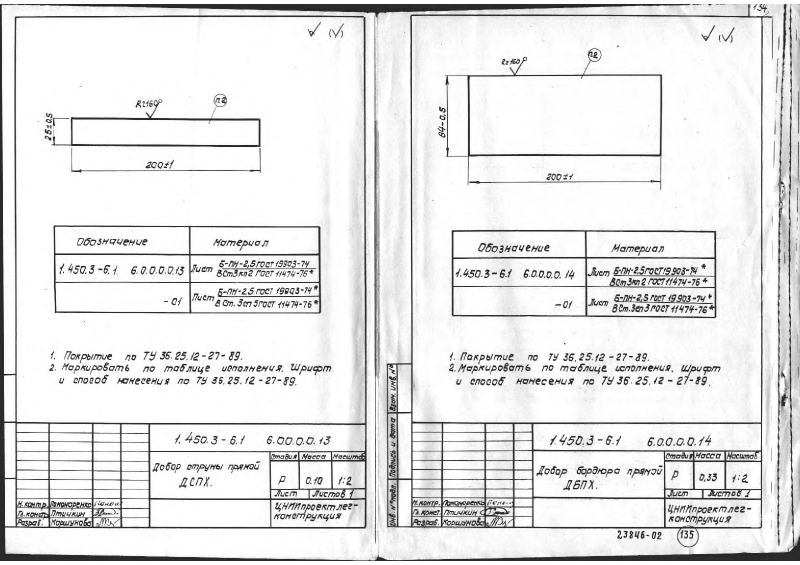 134
√ (√)
Rz160
п.2
25±0,5
200±1
Обозначение Материал
1.450.3-6.1. 6.0.0.0.0.13 Лист Б-ПН-2,5 ГОСТ 19903-74
В Ст3кп2 ГОСТ 11474-76*
-01 Лист Б-ПН-2.5 ГОСТ 19903-74*
В Ст. 3сп5 ГОСТ 11474-76*
1. Покрытие по ТУ 36.25.12-27-89.
2. Маркировать по таблице исполнения. Шрифт
и способ нанесения по ТУ 36.25.12-27-89.
1.450.3-6.1 6.0.0.0.0.13
Добор струны прямой
ДСПХ.
Стадия Масса Масштаб
Р 0.10 1:2
Лист Листов 1
Н.контр. Понамаренко
Гл.констр. Птичкин
Разраб. Коршунова
ЦНИИпроектлег-
конструкция
√ (√)
Rz160
п.2
64-0,5
200±1
Обозначение Материал
1.450.3-6.1 6.0.0.0.0.14 Лист Б-ПН-2,5 ГОСТ 19903-74*
В Ст3кп2 ГОСТ 11474-76*
-01 Лист Б-ПН-2.5 ГОСТ 19903-74*
В Ст.3сп5 ГОСТ 11474-76*
1. Покрытие по ТУ 36.25.12-27-89.
2. Маркировать по таблице исполнения. Шрифт
и способ нанесения по ТУ 36.25.12-27-89.
Инв. № подл. Подпись и дата Взам. инв. №
1.450.3-6.1 6.0.0.0.0.14
Добор бордюра прямой
ДБПХ.
Стадия Масса Масштаб
Р 0,33 1:2
Лист Листов 1
Н.контр. Понамаренко
Гл.конст. Птичкин
Разраб. Коршунова
ЦНИИпроектлег-
конструкция
23846-02 135